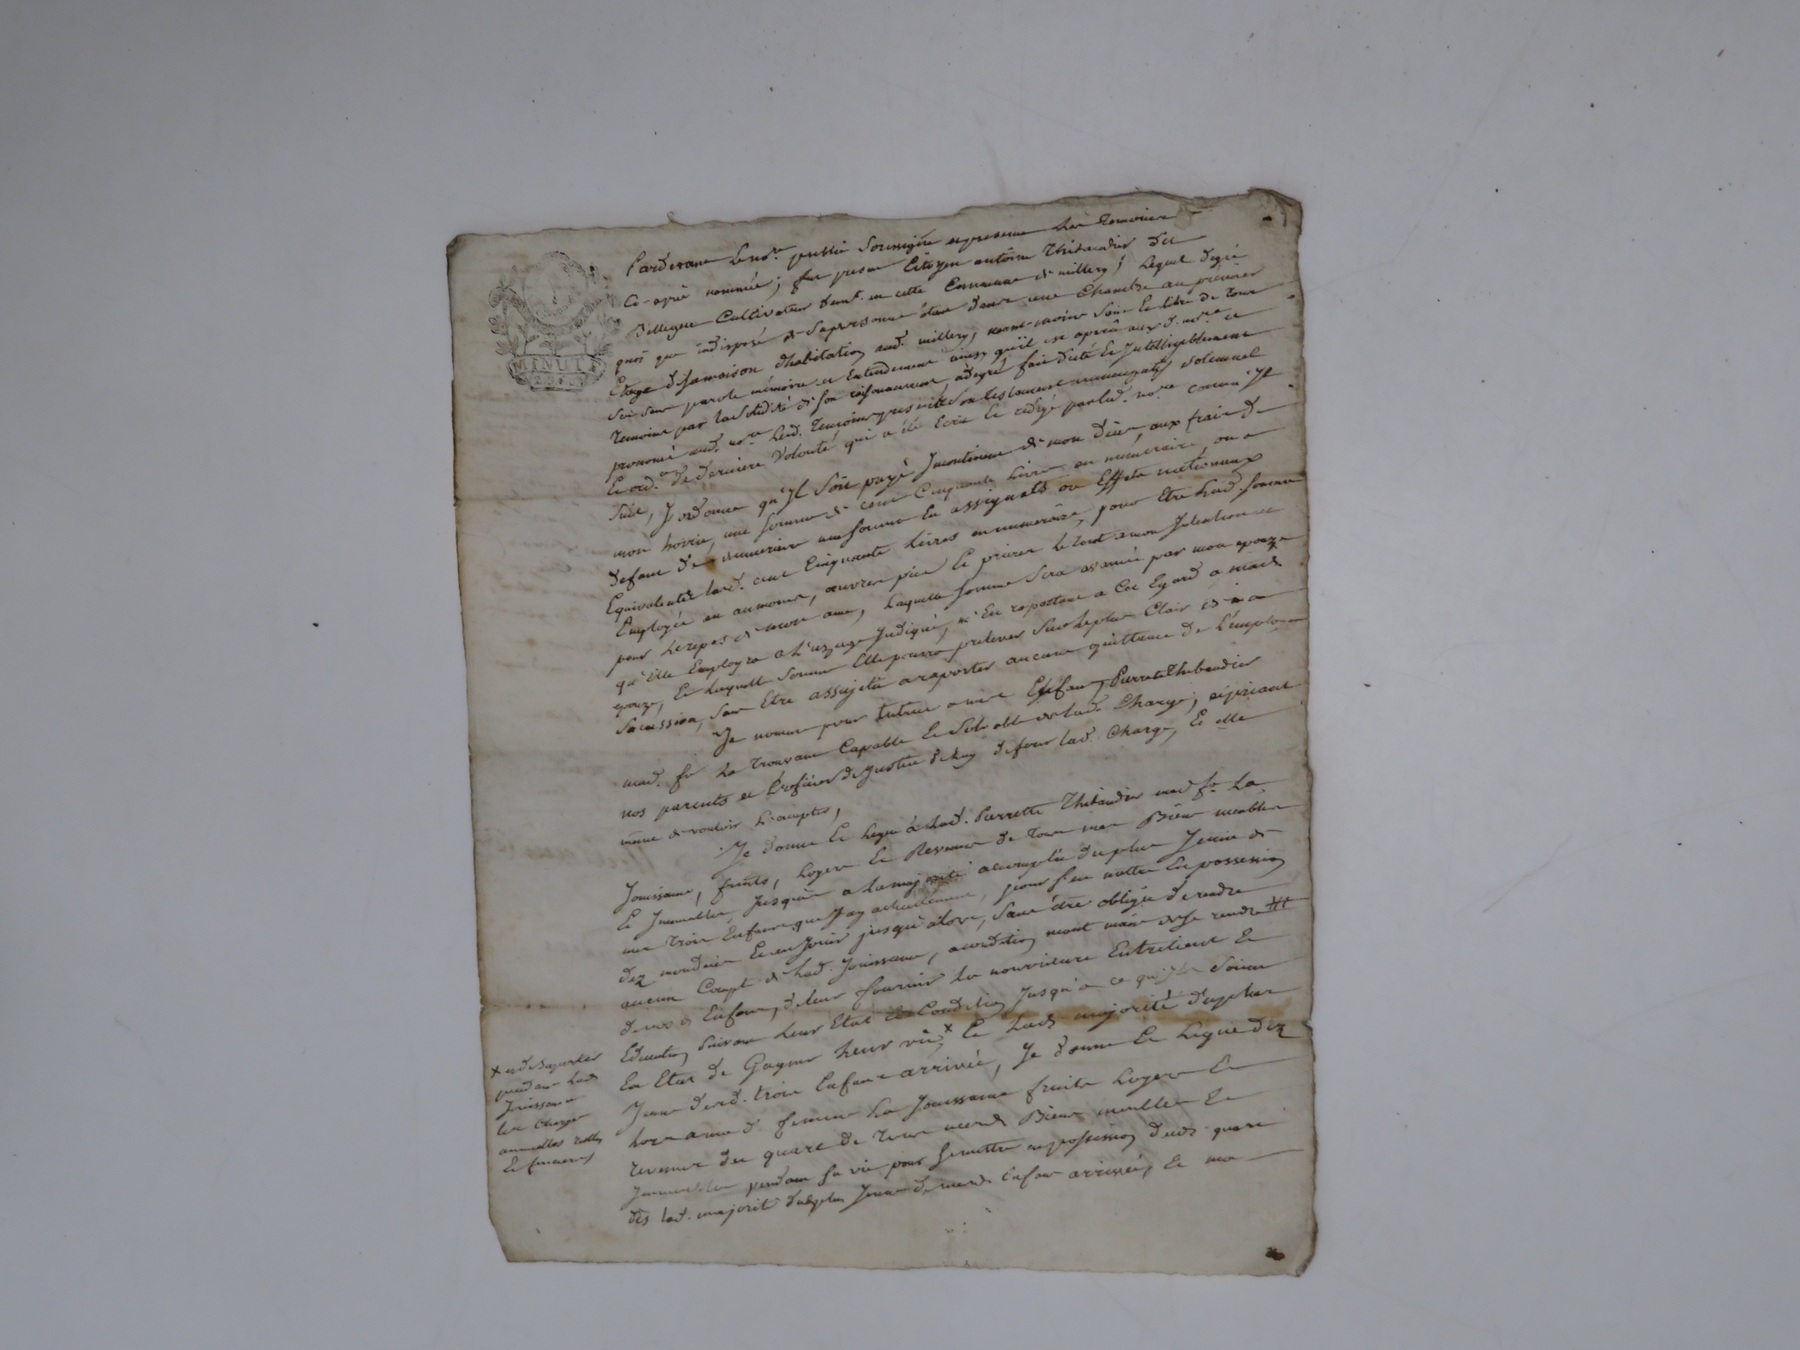 MINUTE
Pardevant le nore. public Soussigné en presence des Temoins
Ci-aprés nommés; fut présent Citoyen antoine Thibaudier dit
Bellegue Cultivateur demt. en cette Commune de millery; lequel degré
quoi que indisposé de Sa personne étant dans une Chambre au premier
Etage de Sa maison d'habitation aud. millery; neant-moins Sain et libre de tous
Ses Sens parole mémoire et Entendement ainsy qu'il est aparû aux d. nore. et
Temoins par la Solidité de Son raisonnement, adegré fait dicté et Intelligiblement
prononcé aud. nore. lesd. Temoins presents Son testament nuncupatif Solemnel
et ord.ce de derniere Volonté qui a été Ecrit et redigé par led. nore. comme Il
Suit, J'ordonne qu'Il Soit payé Incontinent de mon Décès aux frais de
mon hoirie, une Somme de cent Cinquante livres en numeraire, ou a
defaut de numeraire une Somme En assignats ou Effets nationaux
Equivalente lesd. cent Cinquante livres en numeraire, pour Etre lad. Somme
Employée en aumones, œuvres pies et prieres le tout a mon Intention et
pour le repos de mon ame, laquelle Somme Sera avancée par mon epouze
qu'Elle Employra a l'uzage Indiqué, m'En raportant a Cet Egard a mad.
epouze, Et laquelle Somme Elle pourra prelever Sur le plus Clair de ma
Sucession, Sans Etre assujetie a raporter aucune quittance de l'Employ
Je nomme pour tutrice a mes Enfans Pierrette Thibaudier
mad. fe. la Trouvant Capable et Solvable de lad. Charge; réjoüissant
nos parents et l'officier de Justice de luy deferer lad. Charge, Et elle
même de vouloir l'acepter,
Je donne Et legue à lad. Pierrette Thibaudier mad. fe. la
Jouissance, fruits, loyers Et Revenus de Tous mes Biens meubles
Et Immeubles Jusques a la majorité accomplie du plus Jeune de
mes trois Enfans que J'ay actuellement, pour S'en mettre En possession
dez mon décès Et en Jouir jusqu'alors, Sans être obligée de rendre
aucun Compt de lad. Jouissance, a condition neant moins de Se rendre
de nos Enfans, de leur fournir la nourriture Entretient Et
Education Suivant leur Etat Et Condition Jusqu'a ce qu'Ils Soient
En Etat de Gagner leur vie, × Et lad. majorité du plus
Jeune desd. trois Enfans arrivée, Je donne Et legue dez
lors a mad. femme la Jouissance fruits loyers Et
revenus du quart de Tous mesd. Biens meubles Et
Immeubles pendant Sa vie pour Se mettre en possession dud. quart
dés lad. majorité du plus Jeune de mesd. Enfans arrivée, Et ma
× et d'aquitter
pendant lad.
Jouissance
les Charges
annuelles réelles
Et foncieres